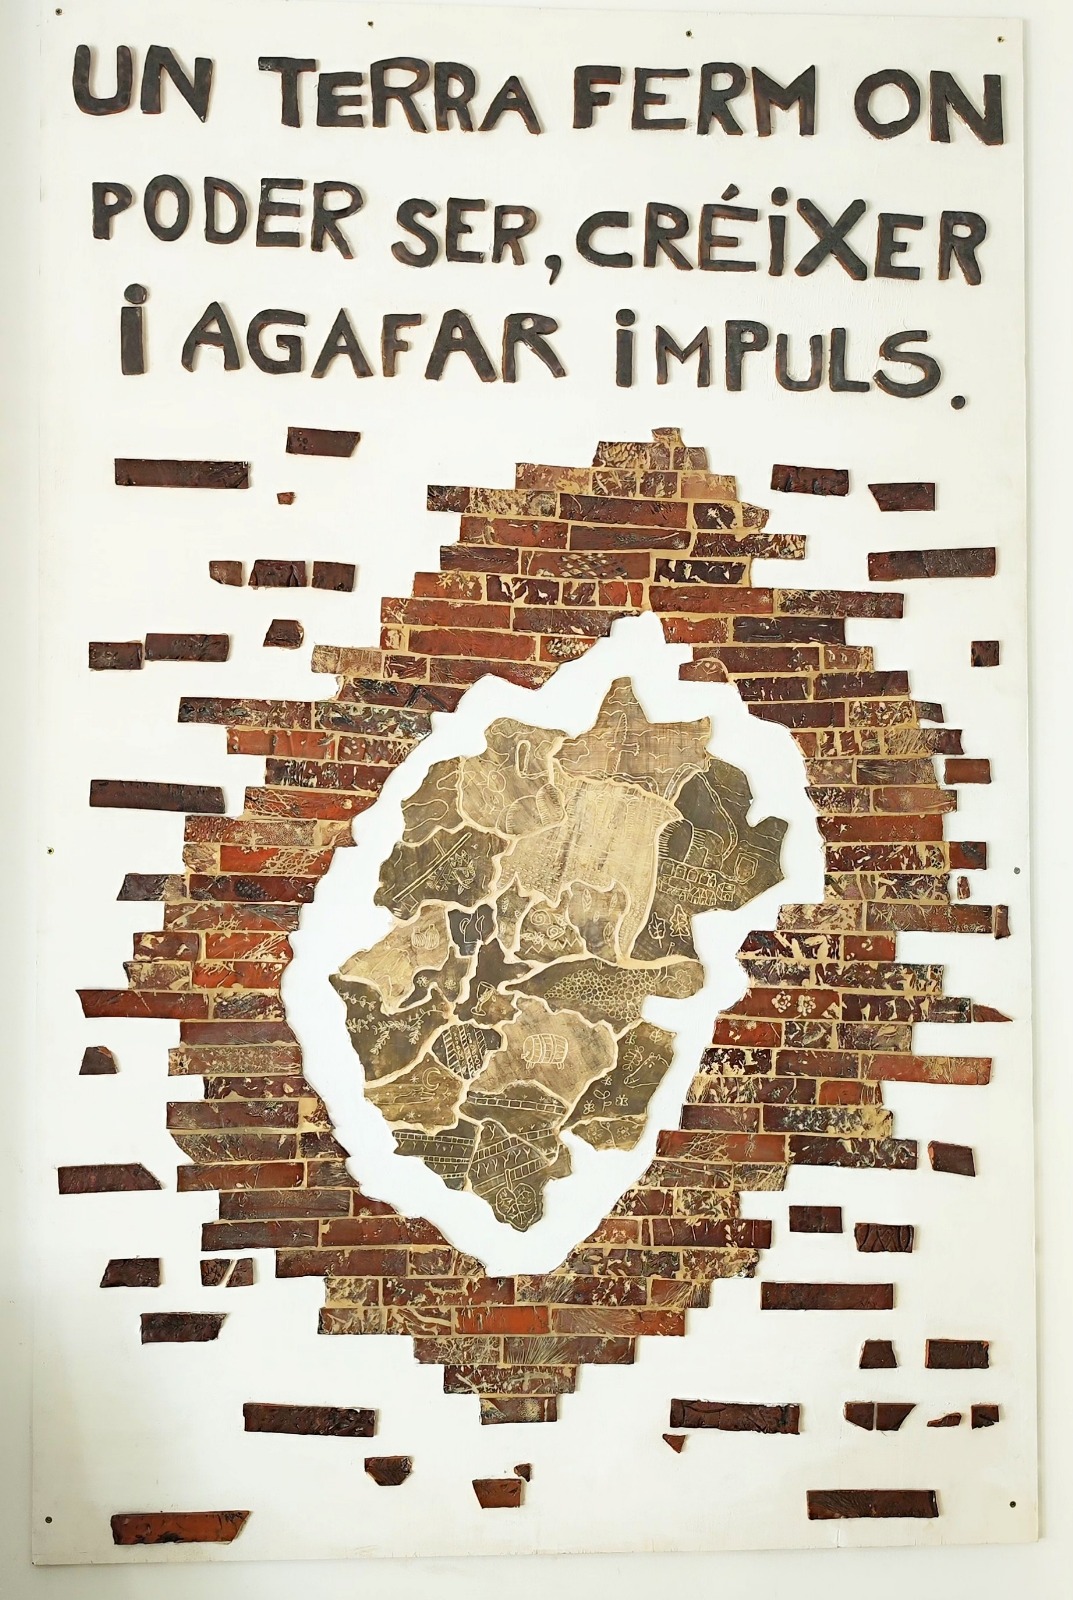 UN TERRA FERM ON
PODER SER, CRÉIXER
I AGAFAR IMPULS.